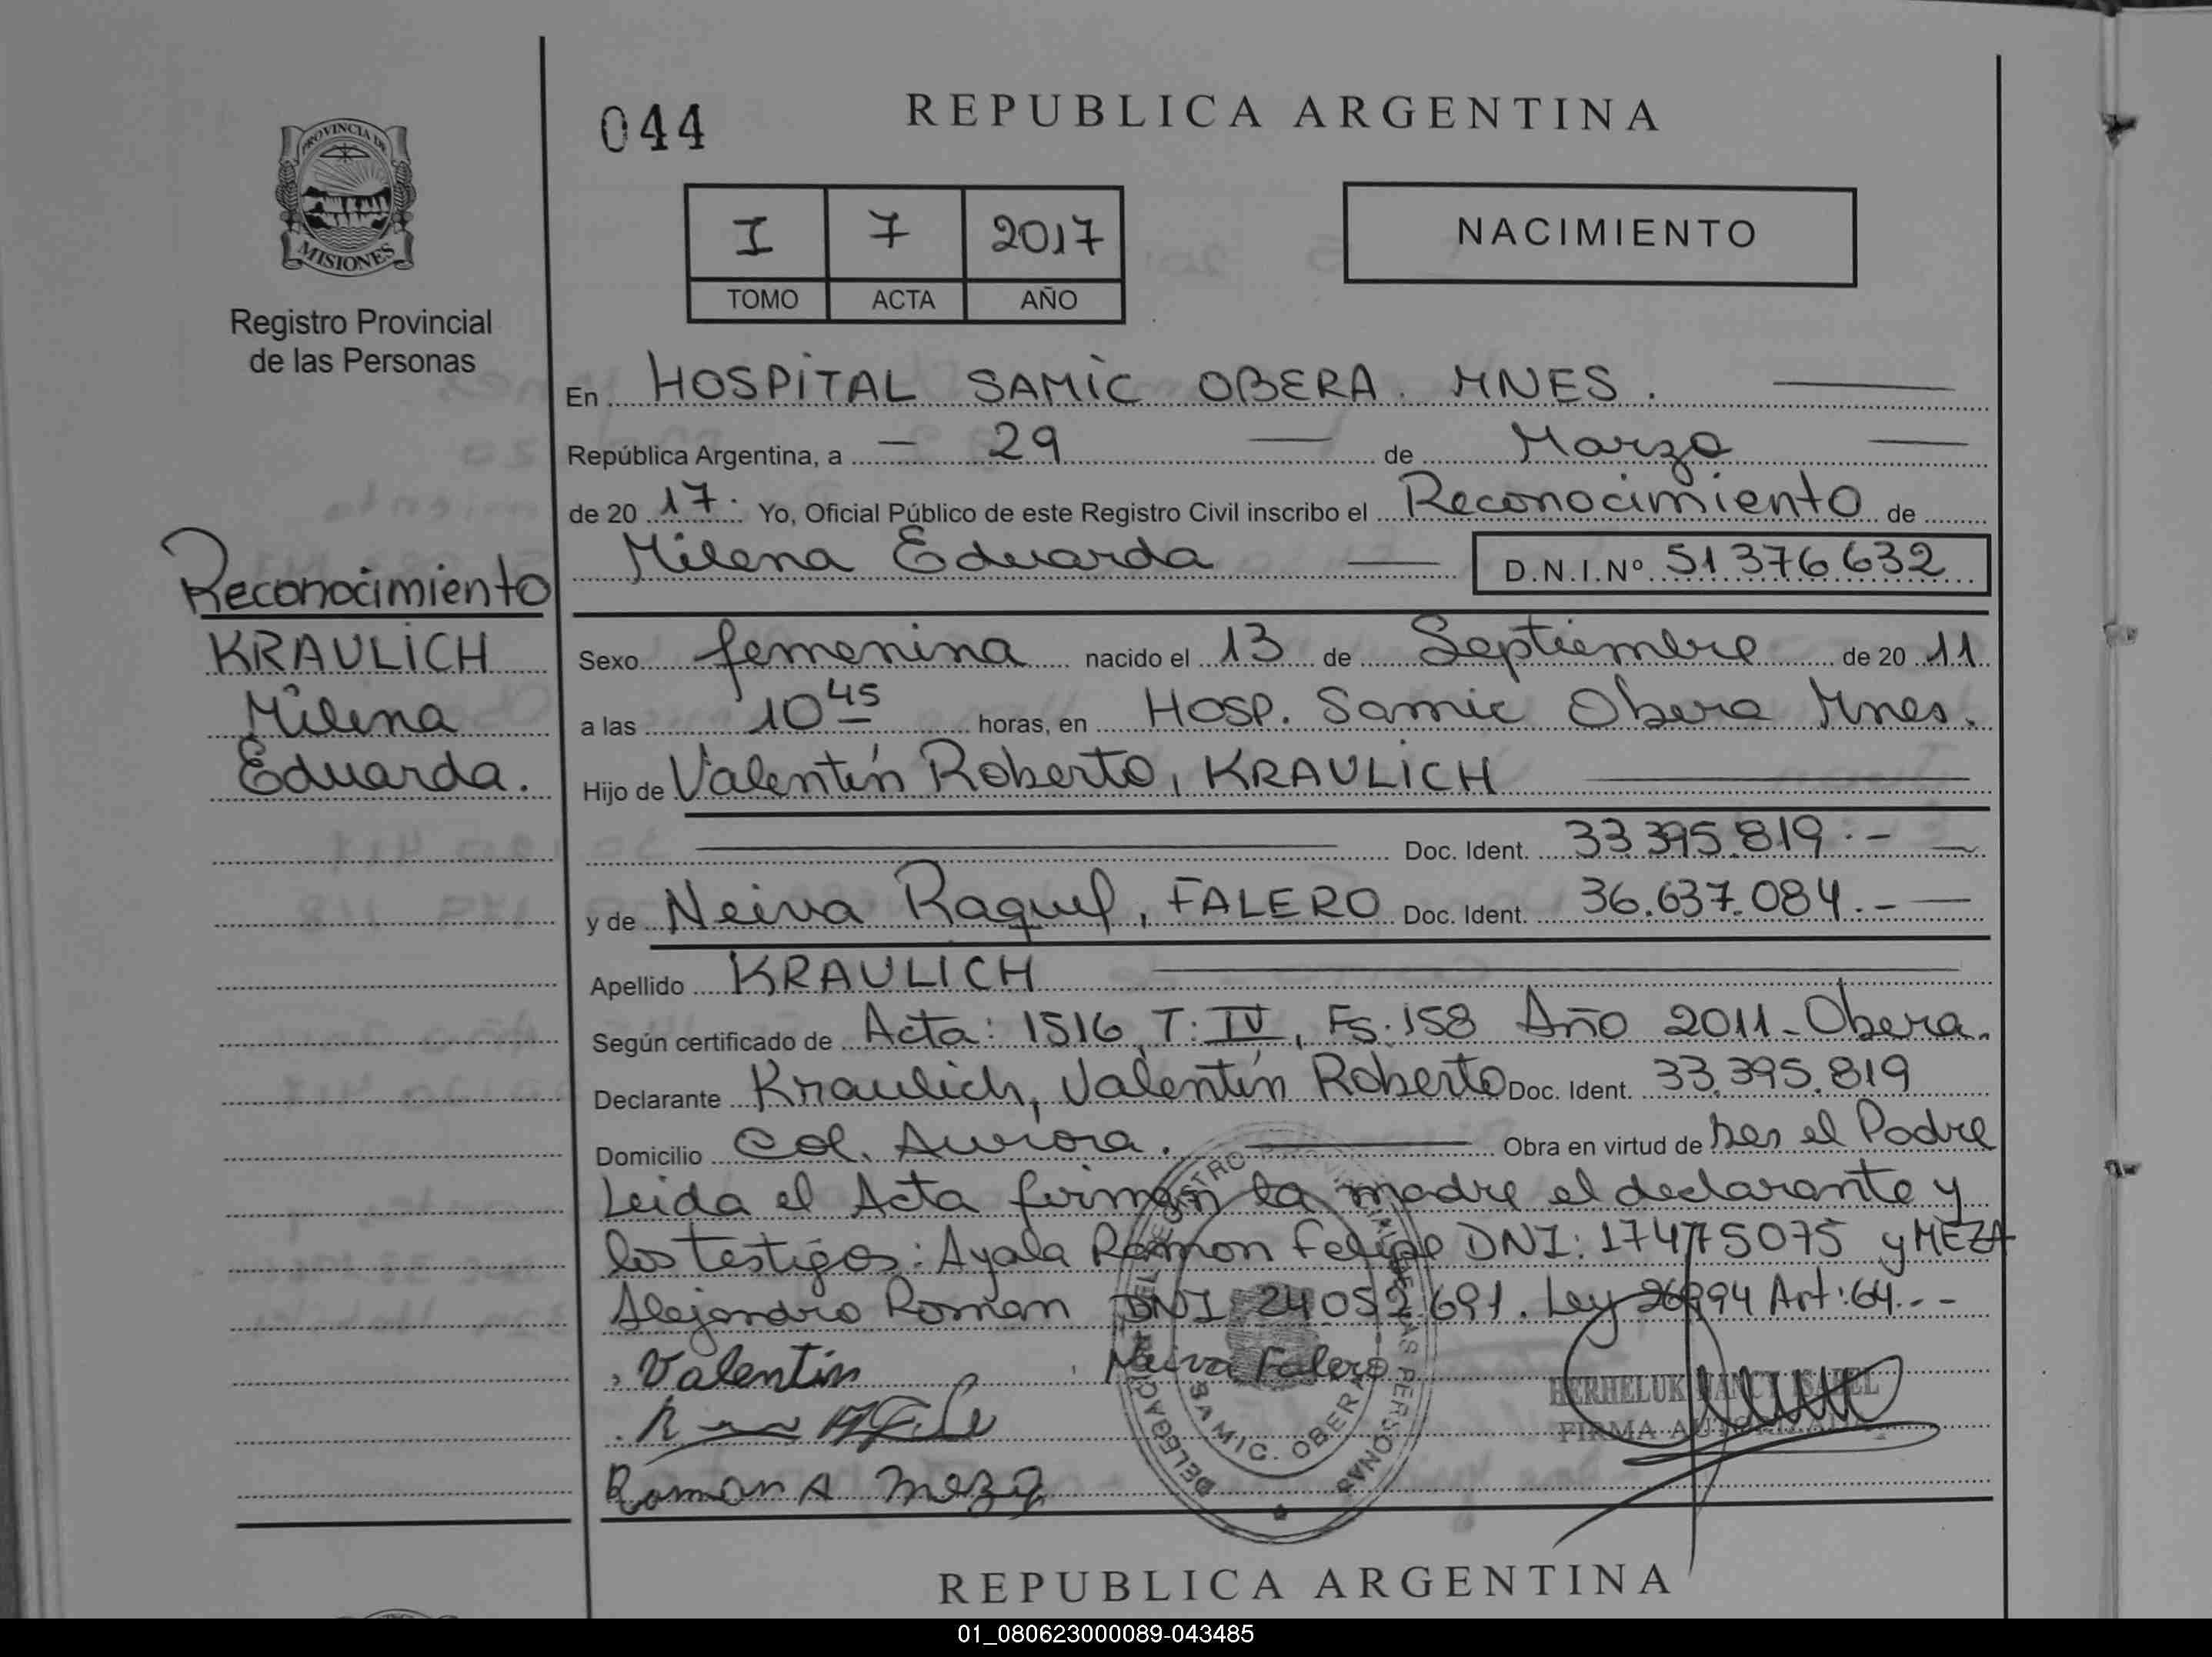 044
REPUBLICA ARGENTINA
PROVINCIA DE
MISIONES
Registro Provincial
de las Personas
I 7 2017
TOMO ACTA AÑO
NACIMIENTO
En HOSPITAL SAMIC OBERA. MNES.
República Argentina, a - 29 de Marzo
de 20 17. Yo, Oficial Público de este Registro Civil inscribo el Reconocimiento de
Milena Eduarda D.N.I.Nº 51376632
Reconocimiento
KRAULICH
Milena
Eduarda.
Sexo femenina nacido el 13 de Septiembre de 20 11
a las 10 45 horas, en Hosp. Samic Obera Mnes.
Hijo de Valentín Roberto, KRAULICH
Doc. Ident. 33.395.819.-
y de Neiva Raquel, FALERO Doc. Ident. 36.637.084.-
Apellido KRAULICH
Según certificado de Acta: 1516, T: IV, Fs: 158 Año 2011-Obera.
Declarante Kraulich, Valentín Roberto Doc. Ident. 33.395.819
Domicilio Col. Aurora. Obra en virtud de ser el Padre
Leida el Acta firman la madre el declarante y
los testigos: Ayala Ramon Felipe DNI: 17475075 y MEZA
Alejandro Roman DNI 24052691. Ley 26994 Art: 64.--
Valentin Neiva Falero
BERHELUK NANCY ISABEL
FIRMA AUTORIZADA
Roman A Meza
SAMIC. OBERA
REPUBLICA ARGENTINA
01_080623000089-043485